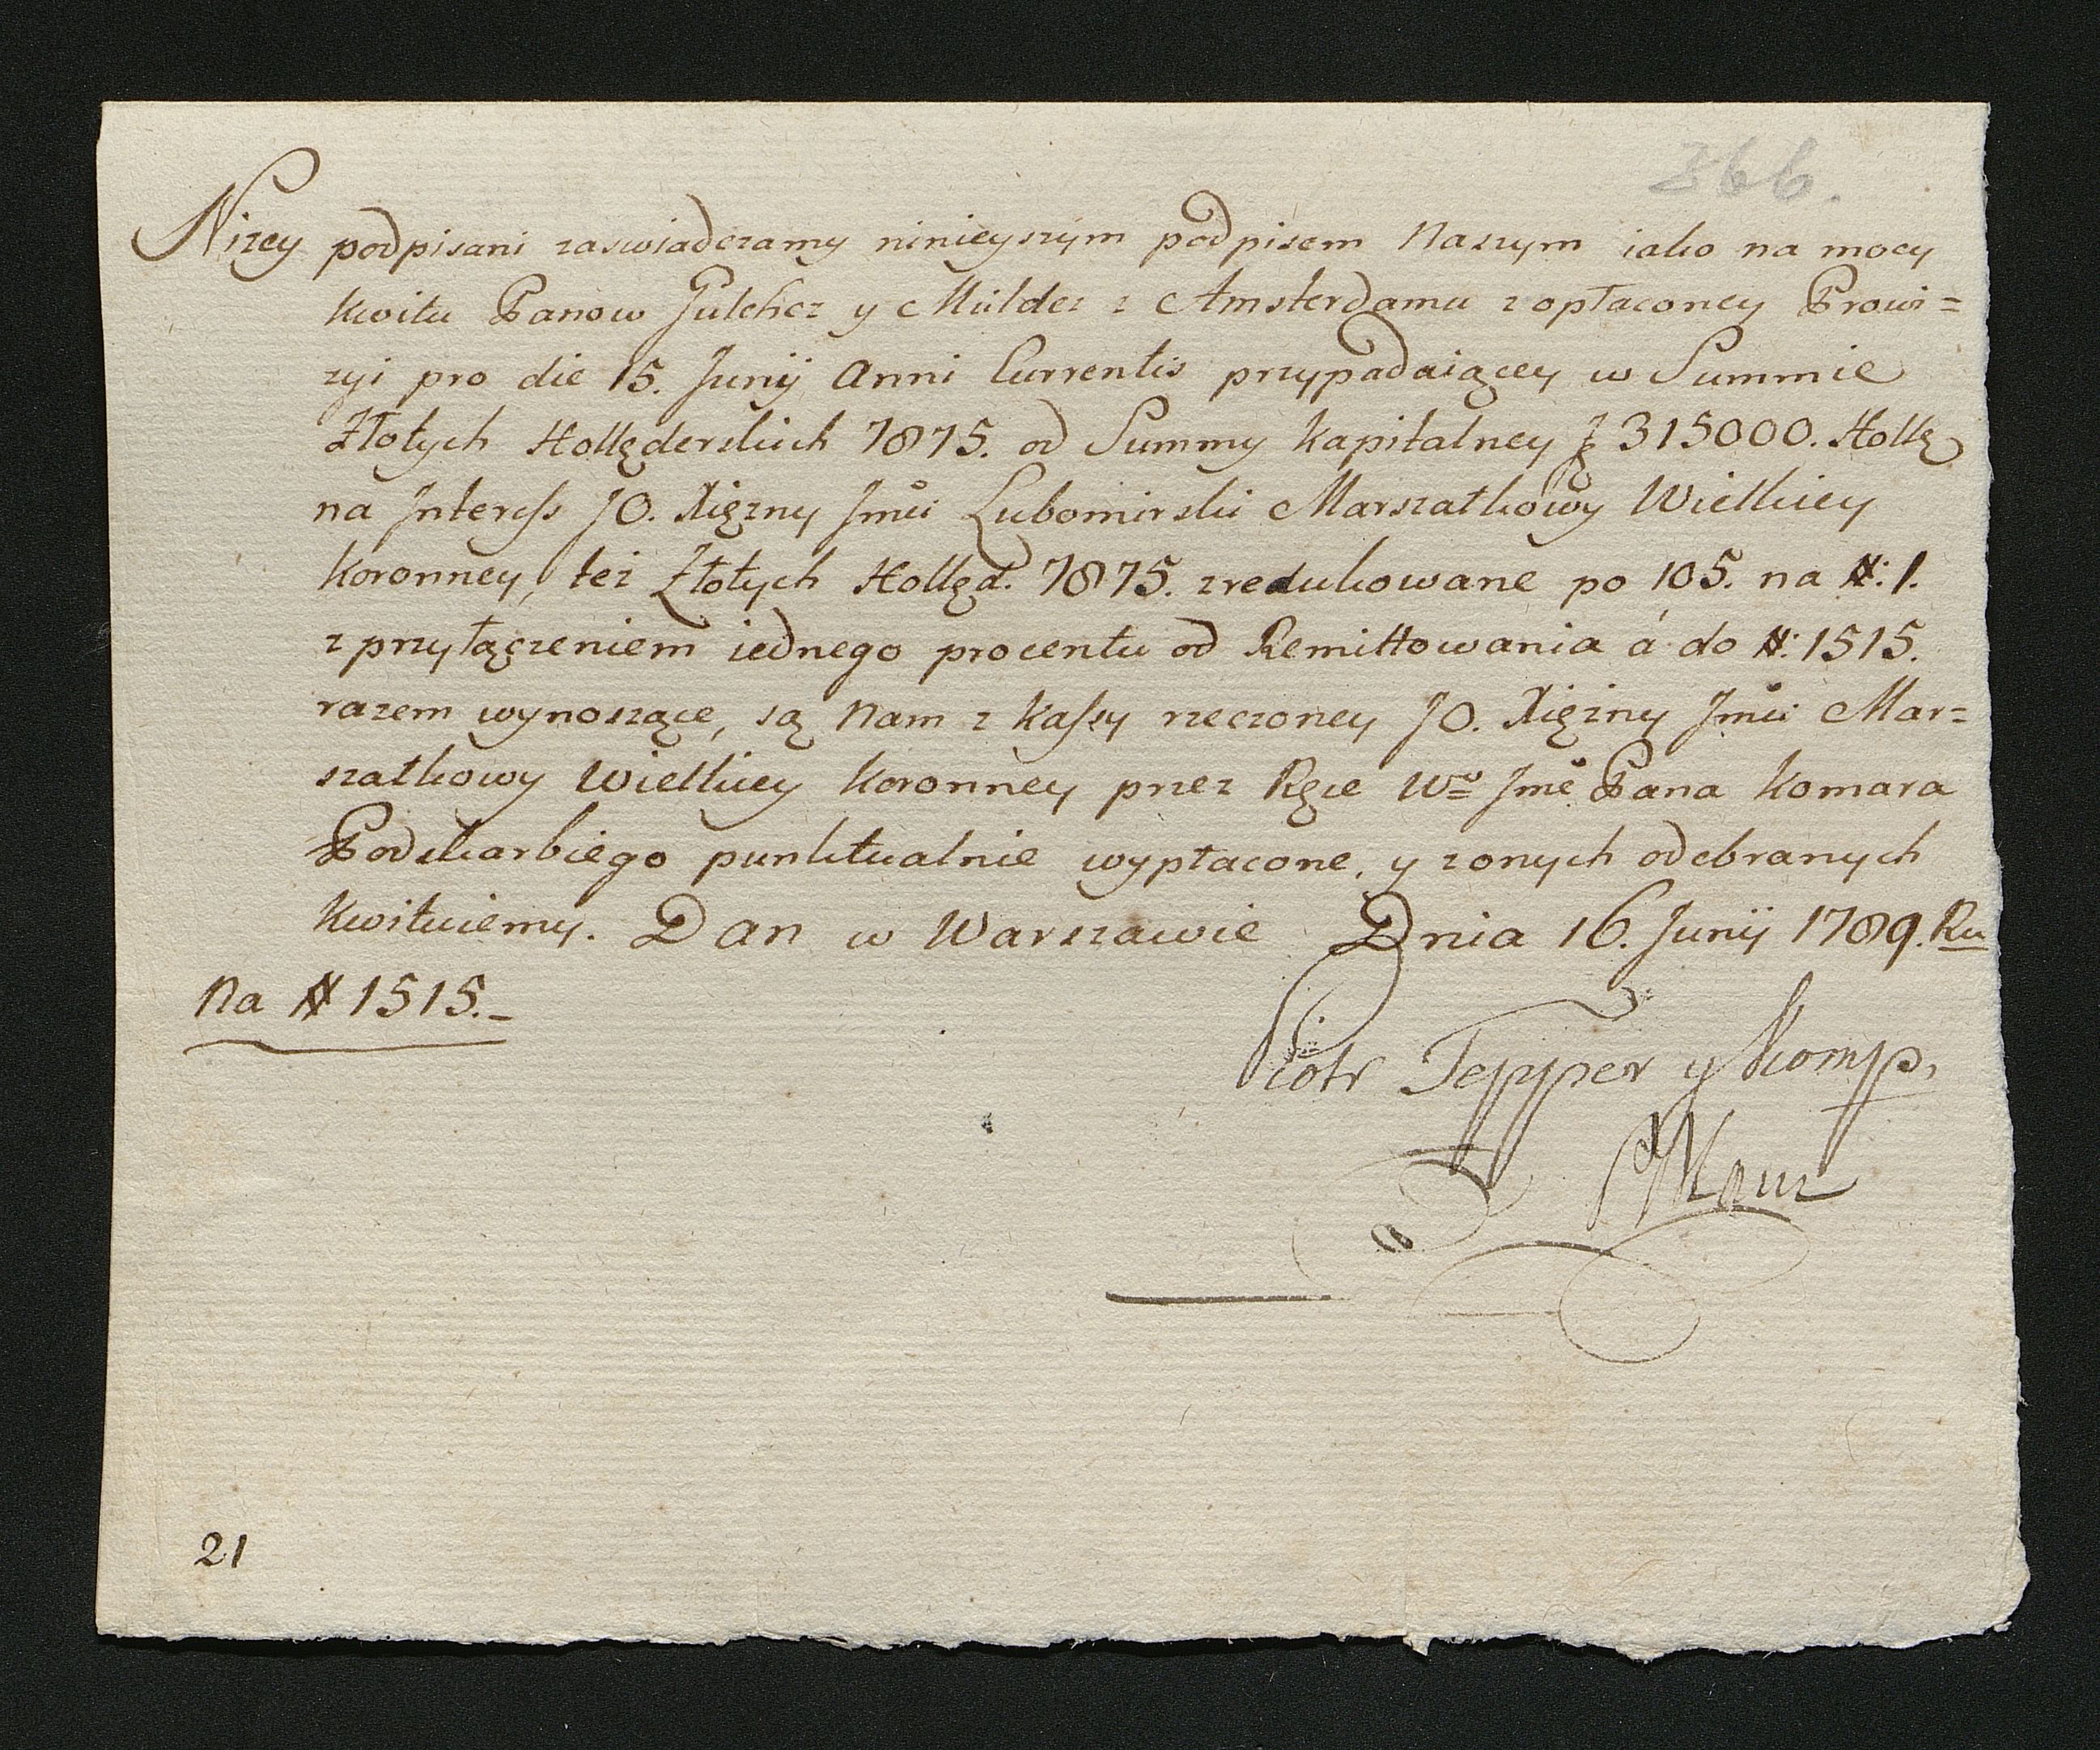 366.
Nizey podpisani zaswiadczamy ninieyszym podpisem Naszym iako na mocy
kwitu Panow Gulcher y Mülder z Amsterdamu z opłaconey Prowi=
zyi pro die 15. Junij Anni Currentis przypadaiącey w Summie
Złotych Hollęderskich 7875. od Summy kapitalney f 315000. Hollę
na Interess JO. Xięzny Jmci Lubomirski Marszałkowy Wielkiey
Koronney, też Złotych Hollęd. 7875. zredukowane po 105. na #: 1.
z przyłączeniem iednego procentu od Remittowania á do #: 1515.
razem wynoszące, są Nam z kassy rzeczoney JO. Xięzny Jmci Mar=
szałkowy Wielkiey Koronney przez Ręce Wo Jme Pana Komara
Podskarbiego punktualnie wypłacone, y z onych odebranych
kwituiemy. Dan w Warszawie Dnia 16. Junij 1789. Ru
Na # 1515.-
Piotr Tepper y Komp.
21